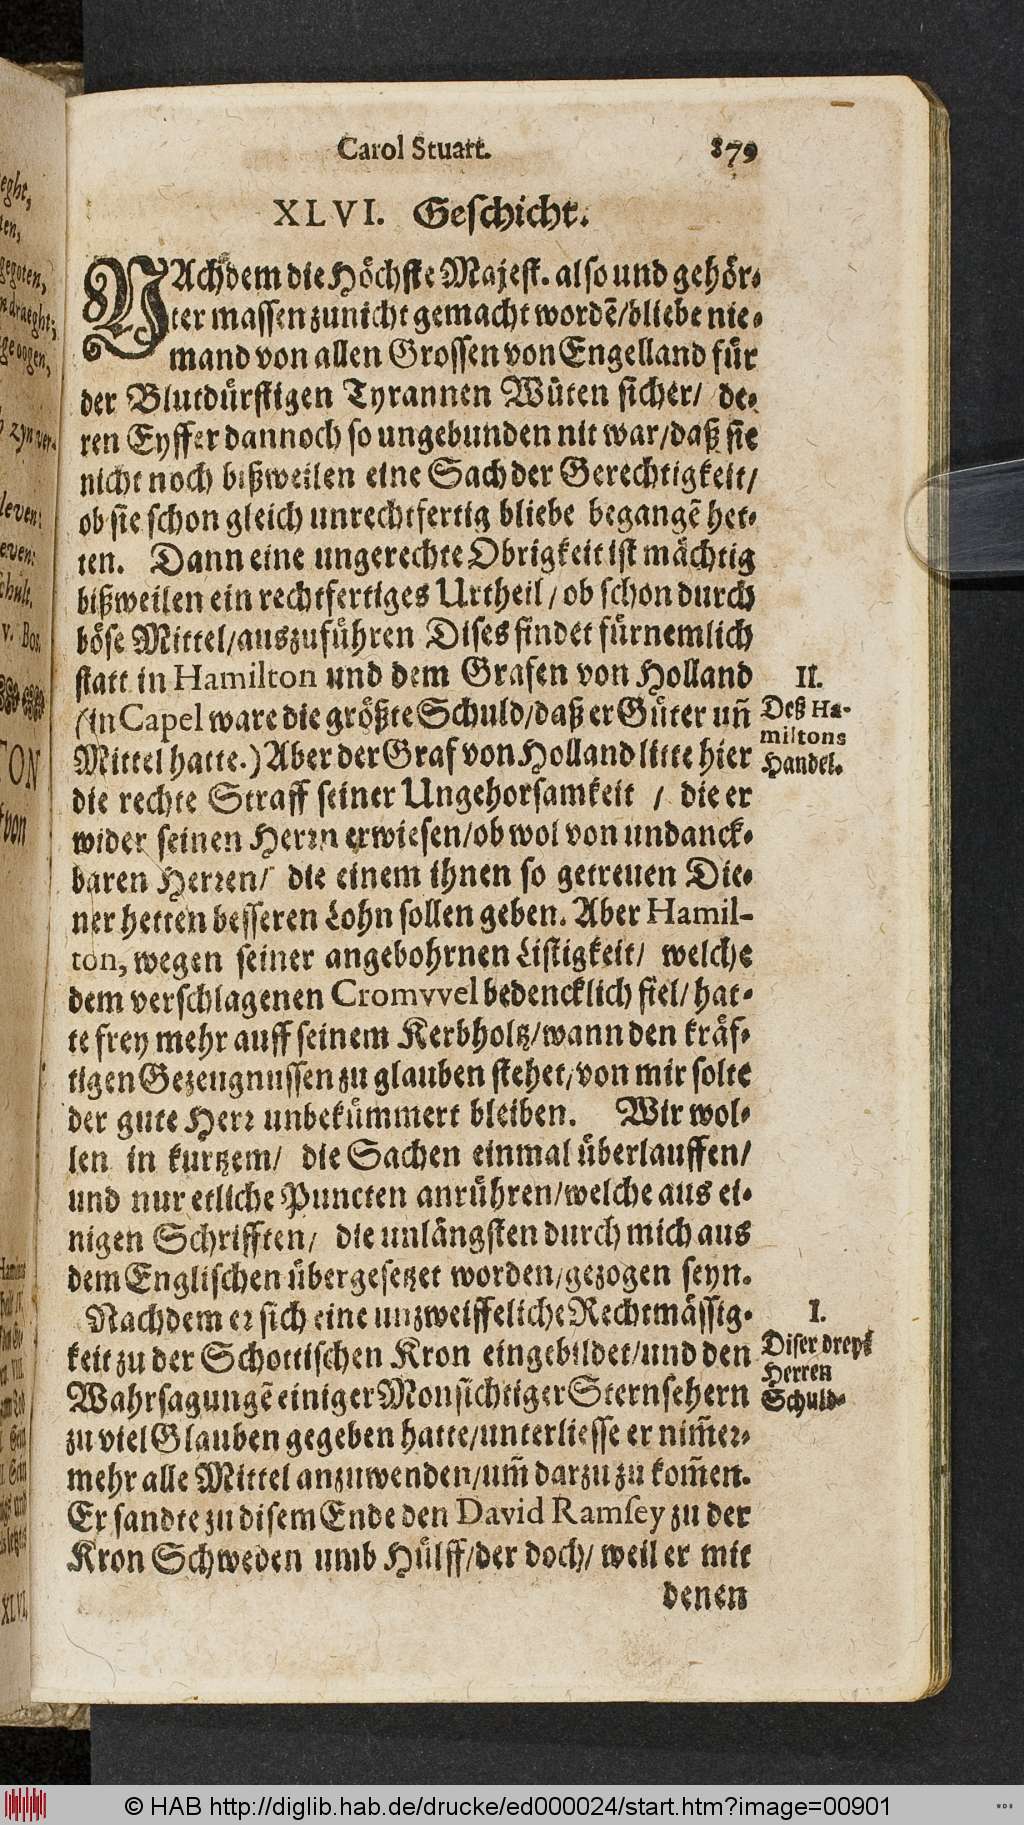 Carol Stuart. 879
XLVI. Geschicht.
NAchdem die Höchste Majest. also und gehör-
ter massen zunicht gemacht wordẽ/bliebe nie-
mand von allen Grossen von Engelland für
der Blutdürstigen Tyrannen Wüten sicher/ de-
ren Eyffer dannoch so ungebunden nit war/daß sie
nicht noch bißweilen eine Sach der Gerechtigkeit/
ob sie schon gleich unrechtfertig bliebe begangẽ het-
ten. Dann eine ungerechte Obrigkeit ist mächtig
bißweilen ein rechtfertiges Urtheil/ob schon durch
böse Mittel/auszuführen Dises findet fürnemlich
statt in Hamilton und dem Grafen von Holland
(in Capel ware die größte Schuld/daß er Güter uñ
Mittel hatte.) Aber der Graf von Holland litte hier
die rechte Straff seiner Ungehorsamkeit / die er
wider seinen Herrn erwiesen/ob wol von undanck-
baren Herren/ die einem ihnen so getreuen Die-
ner hetten besseren Lohn sollen geben. Aber Hamil-
ton, wegen seiner angebohrnen Listigkeit/ welche
dem verschlagenen Cromvvel bedencklich fiel/ hat-
te frey mehr auff seinem Kerbholtz/wann den kräf-
tigen Gezeugnussen zu glauben stehet/von mir solte
der gute Herr unbekümmert bleiben. Wir wol-
len in kurtzem/ die Sachen einmal überlauffen/
und nur etliche Puncten anrühren/welche aus ei-
nigen Schrifften/ die unlängsten durch mich aus
dem Englischen übergesetzet worden/gezogen seyn.
Nachdem er sich eine unzweiffeliche Rechtmässig-
keit zu der Schottischen Kron eingebildet/und den
Wahrsagungẽ einiger Monsichtiger Sternsehern
zu viel Glauben gegeben hatte/unterliesse er nim̃er-
mehr alle Mittel anzuwenden/um̃ darzu zu kom̃en.
Er sandte zu disem Ende den David Ramsey zu der
Kron Schweden umb Hülff/der doch/ weil er mit
denen
II.
Deß Ha-
miltons
Handel.
I.
Diser dreyẽ
Herren
Schuld-
eght,
ten,
gegoten,
draeght;
ge oogen,
zyn ver-
leven:
even:
schult.
v. Bos.
TON
von
XLVI.
© HAB http://diglib.hab.de/drucke/ed000024/start.htm?image=00901